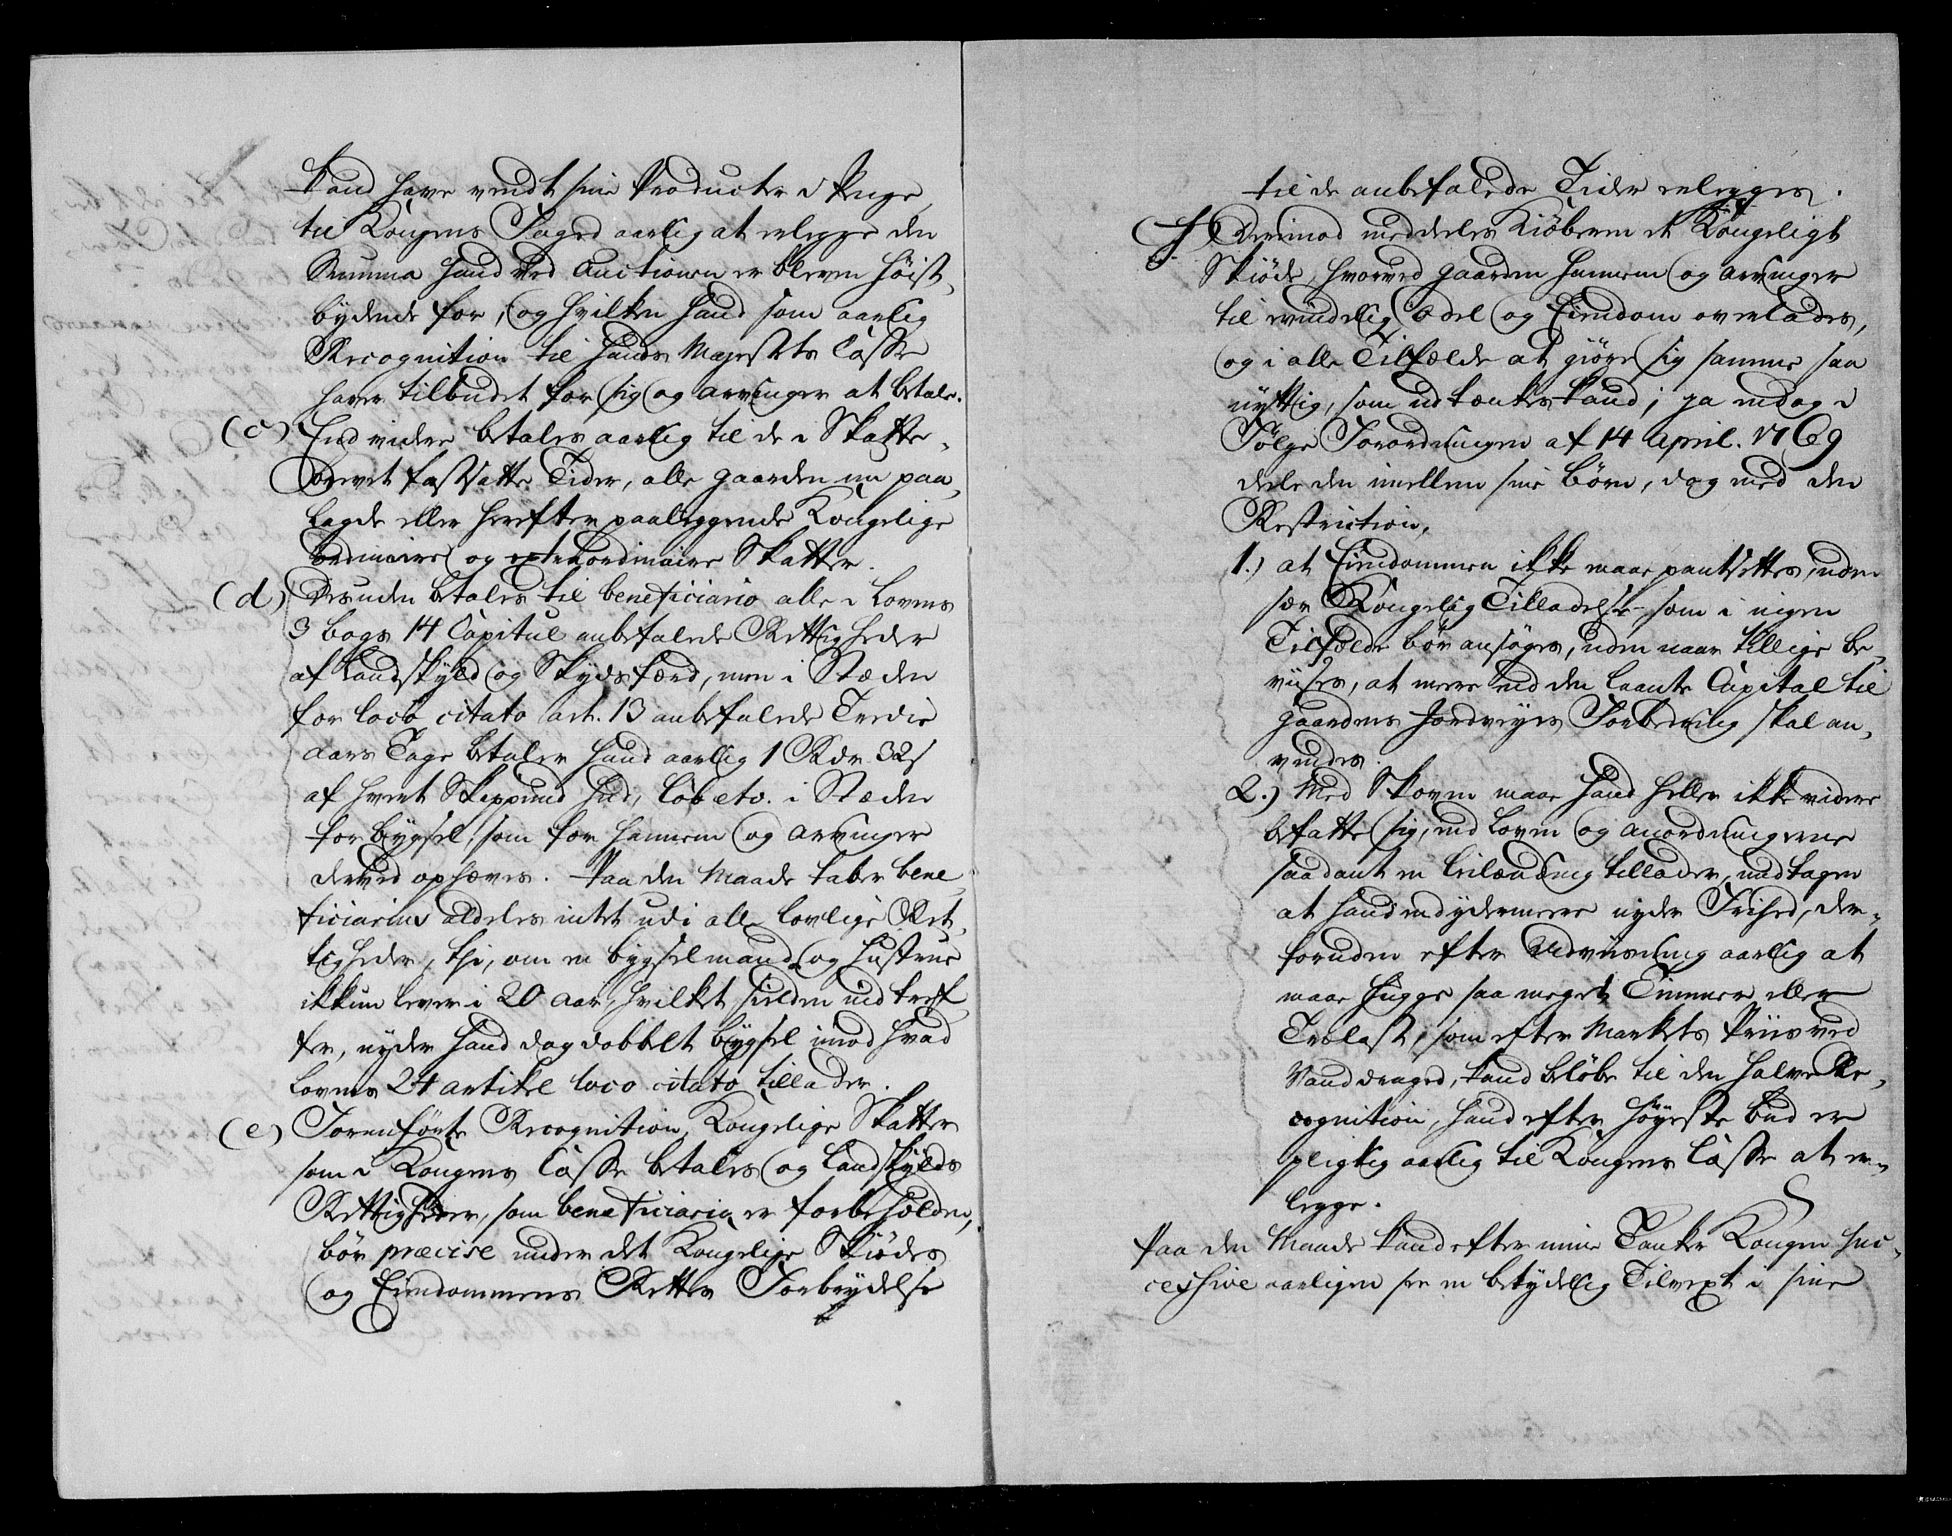 kand have vendt sine Producter i Penge,
til Kongens Foged aarlig at erlegge den
Summa hand ved Auctionen er bleven høist-
bydende for, og hvilken hand som aarlig
Recognition til Hands Majestets Casse
haver tilbudet for sig og Arvinger at betale.
(c) End videre betales aarlig til de i Skatte-
brevet fastsatte Tider, alle gaarden nu paa-
lagde eller herefter paaleggende Kongelige
ordinaire og extraordinaire Skatter.
(d) Desuden betales til beneficiario alle i Lovens
3 bogs 14 Capitul anbefalede Rettigheder
af Landskyld og Skydsfærd, men i Stæden
for loco citato art. 13 anbefalede Tredie
Aars Tage betaler hand aarlig 1 Rdr 32 s
af hvert Skippund Hud, Løb etc. i Stæden
for bygsel, som for hannem og Arvinger
derved ophæves. Paa den Maade taber bene-
ficiarius aldeles intet udi alle lovlige Ret-
tigheder, thi, om en bygselmand og Hustrue
ikkun lever i 20 Aar, hvilket sielden ind tref-
fer, nyder hand dog dobbelt bygsel imod hvad
Lovens 24 artikel loco citato tillader.
(e) Forenførte Recognition, Kongelige Skatter
som i Kongens Casse betales og Landskylds
Rettigheder, som beneficiario er forbeholden,
bør præcise under det Kongelige Skiødes
og Eiendommens Rettes Forbrydelse
til de anbefalede Tider erlegges.
(f) Derimod meddeles Kiøberen et Kongeligt
Skiøde, hvorved gaarden hannem og Arvinger
til evindelig Odel og Eiendom overlades,
og i alle Tilfælde at giøre sig samme saa
nyttig, som udtænkes kand; ja endog i
Følge Forordningen af 14 April. 1769
deele den imellem sine Børn, dog med den
Restriction,
1.) at Eiendommen ikke maae pantsettes, uden
sær Kongelig Tilladelse som i ingen
Tilfælde bør ansøges, uden naar tillige be-
viises, at meere end den laante Capital til
gaardens Jordveyes Forbedring skal an-
vendes.
2.) Med Skoven maae hand heller ikke videre
befatte sig, end Loven og Anordningerne
saadant en Leilænding tillader, undtagen
at hand endydermeere nyder Frihed, der-
foruden efter Udviisning aarlig at
maae hugge saa meget Timmer eller
Trælast, som efter Markets Priis ved
Vanddraget, kand beløbe til den halve Re-
cognition, hand efter høyeste bud er
pligtig aarlig til Kongens Casse at er-
legge.
Paa den Maade kand efter mine Tanker Kongen suc-
cessive aarligen see en betydelig Tilvext i sine